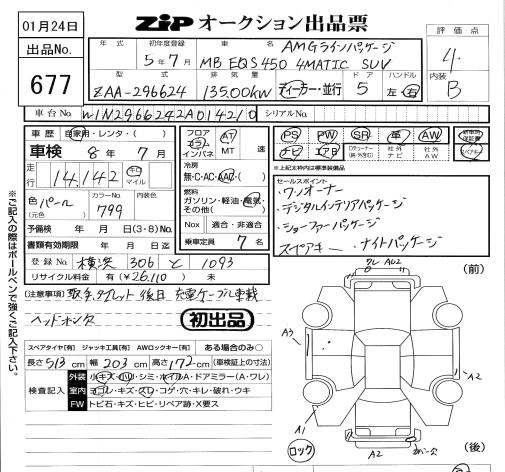 01月24日
ZiP オークション出品票
出品No.
677
年式 初年度登録 車名
5年7月 AMGラインパッケージ
MB EQS450 4MATIC SUV
型式 排気量 ドア ハンドル
ZAA-296624 135.00kw ディーラー・並行 5 左・右
評価点
4
内装
B
車台No. W1N2966242A014210 シリアルNo.
車歴 自家用・レンタ・( )
車検 8年 7月
走行 14,142 キロ マイル
色 パール カラーNo. 799 内装色
(元色)
予備検 年 月 日(3・8)Mo.
書類有効期限 年 月 日迄
フロア コラム インパネ AT MT 速
冷房
無・C・AC・AAC・( )
燃料
ガソリン・軽油・電気・その他( )
Nox 適合・非適合
乗車定員 7 名
PS PW SR 革 AW 新車時保証書
ナビ エアB 社外ナビ 社外AW
※上記太枠内は標準装備品
セールスポイント
・ワンオーナー
・デジタルインテリアパッケージ
・ショーファーパッケージ
ナイトパッケージ
登録No. 横浜 306 と 1093
リサイクル料金 有(¥26,110) 未
注意事項 取手タブレット後日 充電ケーブル車載
ヘッドオンタ
初出品
スペアタイヤ[有] ジャッキ工具[有] AWロックキー[有] ある場合のみ○
長さ 513 cm 幅 203 cm 高さ 172 cm (車検証上の寸法)
検査記入
外装 小キズ・凹・シミ・ホイルA・ドアミラー(A・ワレ)
室内 ヨゴレ・キズ・スレ・コゲ・穴・キレ・破れ・ウキ
FW トビ石・キズ・ヒビ・リペア跡・X要ス
※ご記入の際はボールペンで強くご記入下さい。
(前)
ワレ AU2
A3
A2
A1
A2
ロック
(後)